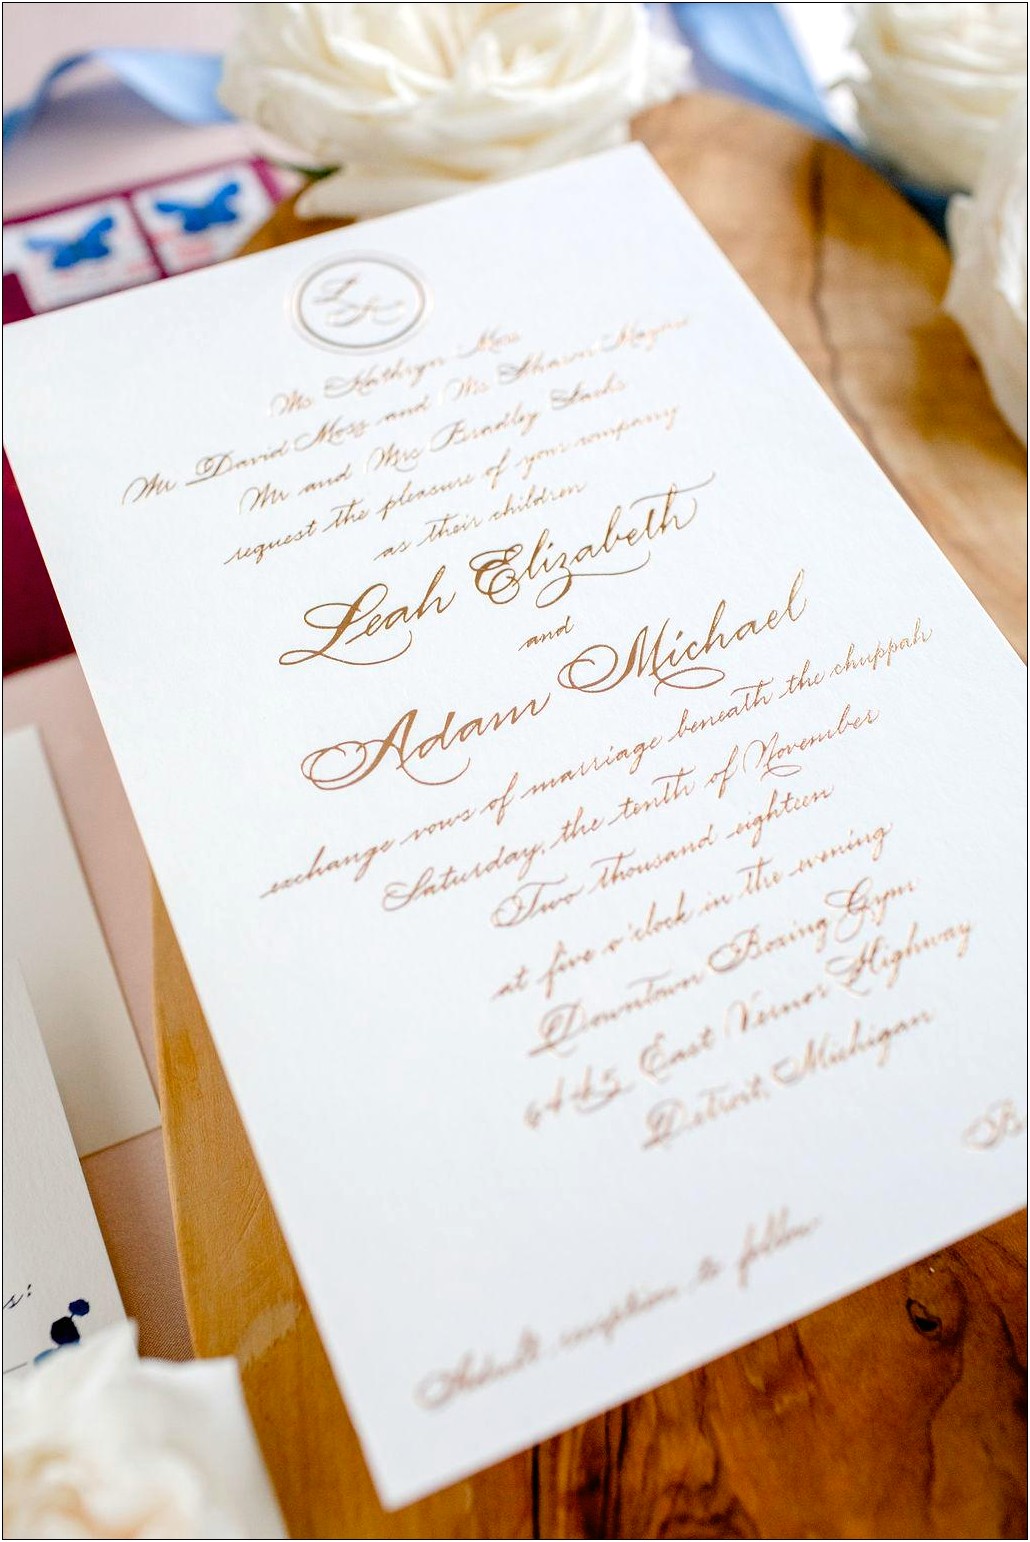 L
A
Ms Kathryn Moss
Mr David Moss and Ms Sharon Mayer
Mr and Mrs Bradley Sachs
request the pleasure of your company
as their children
Leah Elizabeth
and
Adam Michael
exchange vows of marriage beneath the chuppah
Saturday, the tenth of November
Two thousand eighteen
at five o'clock in the evening
Downtown Boxing Gym
6445 East Vernor Highway
Detroit, Michigan
B
Adult reception to follow
s: